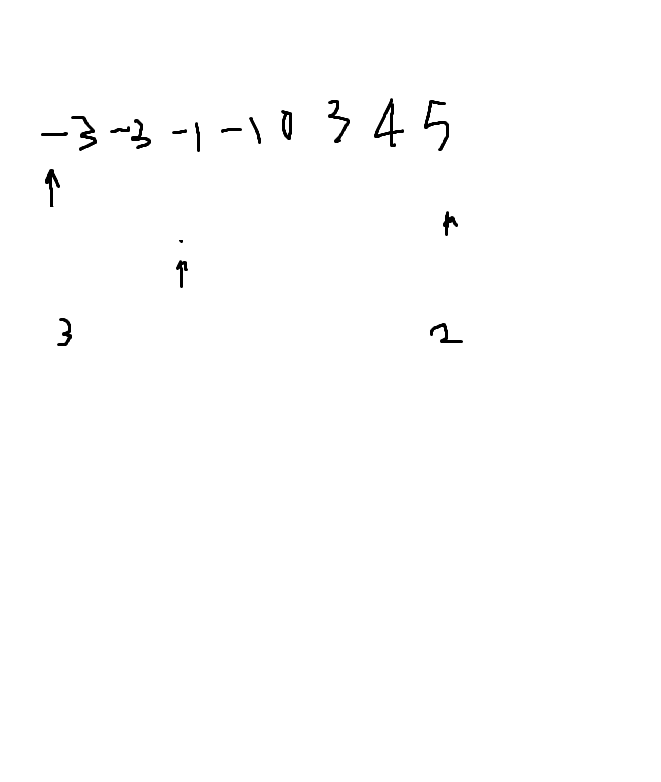 -3 -3 -1 -1 0 3 4 5
3 2